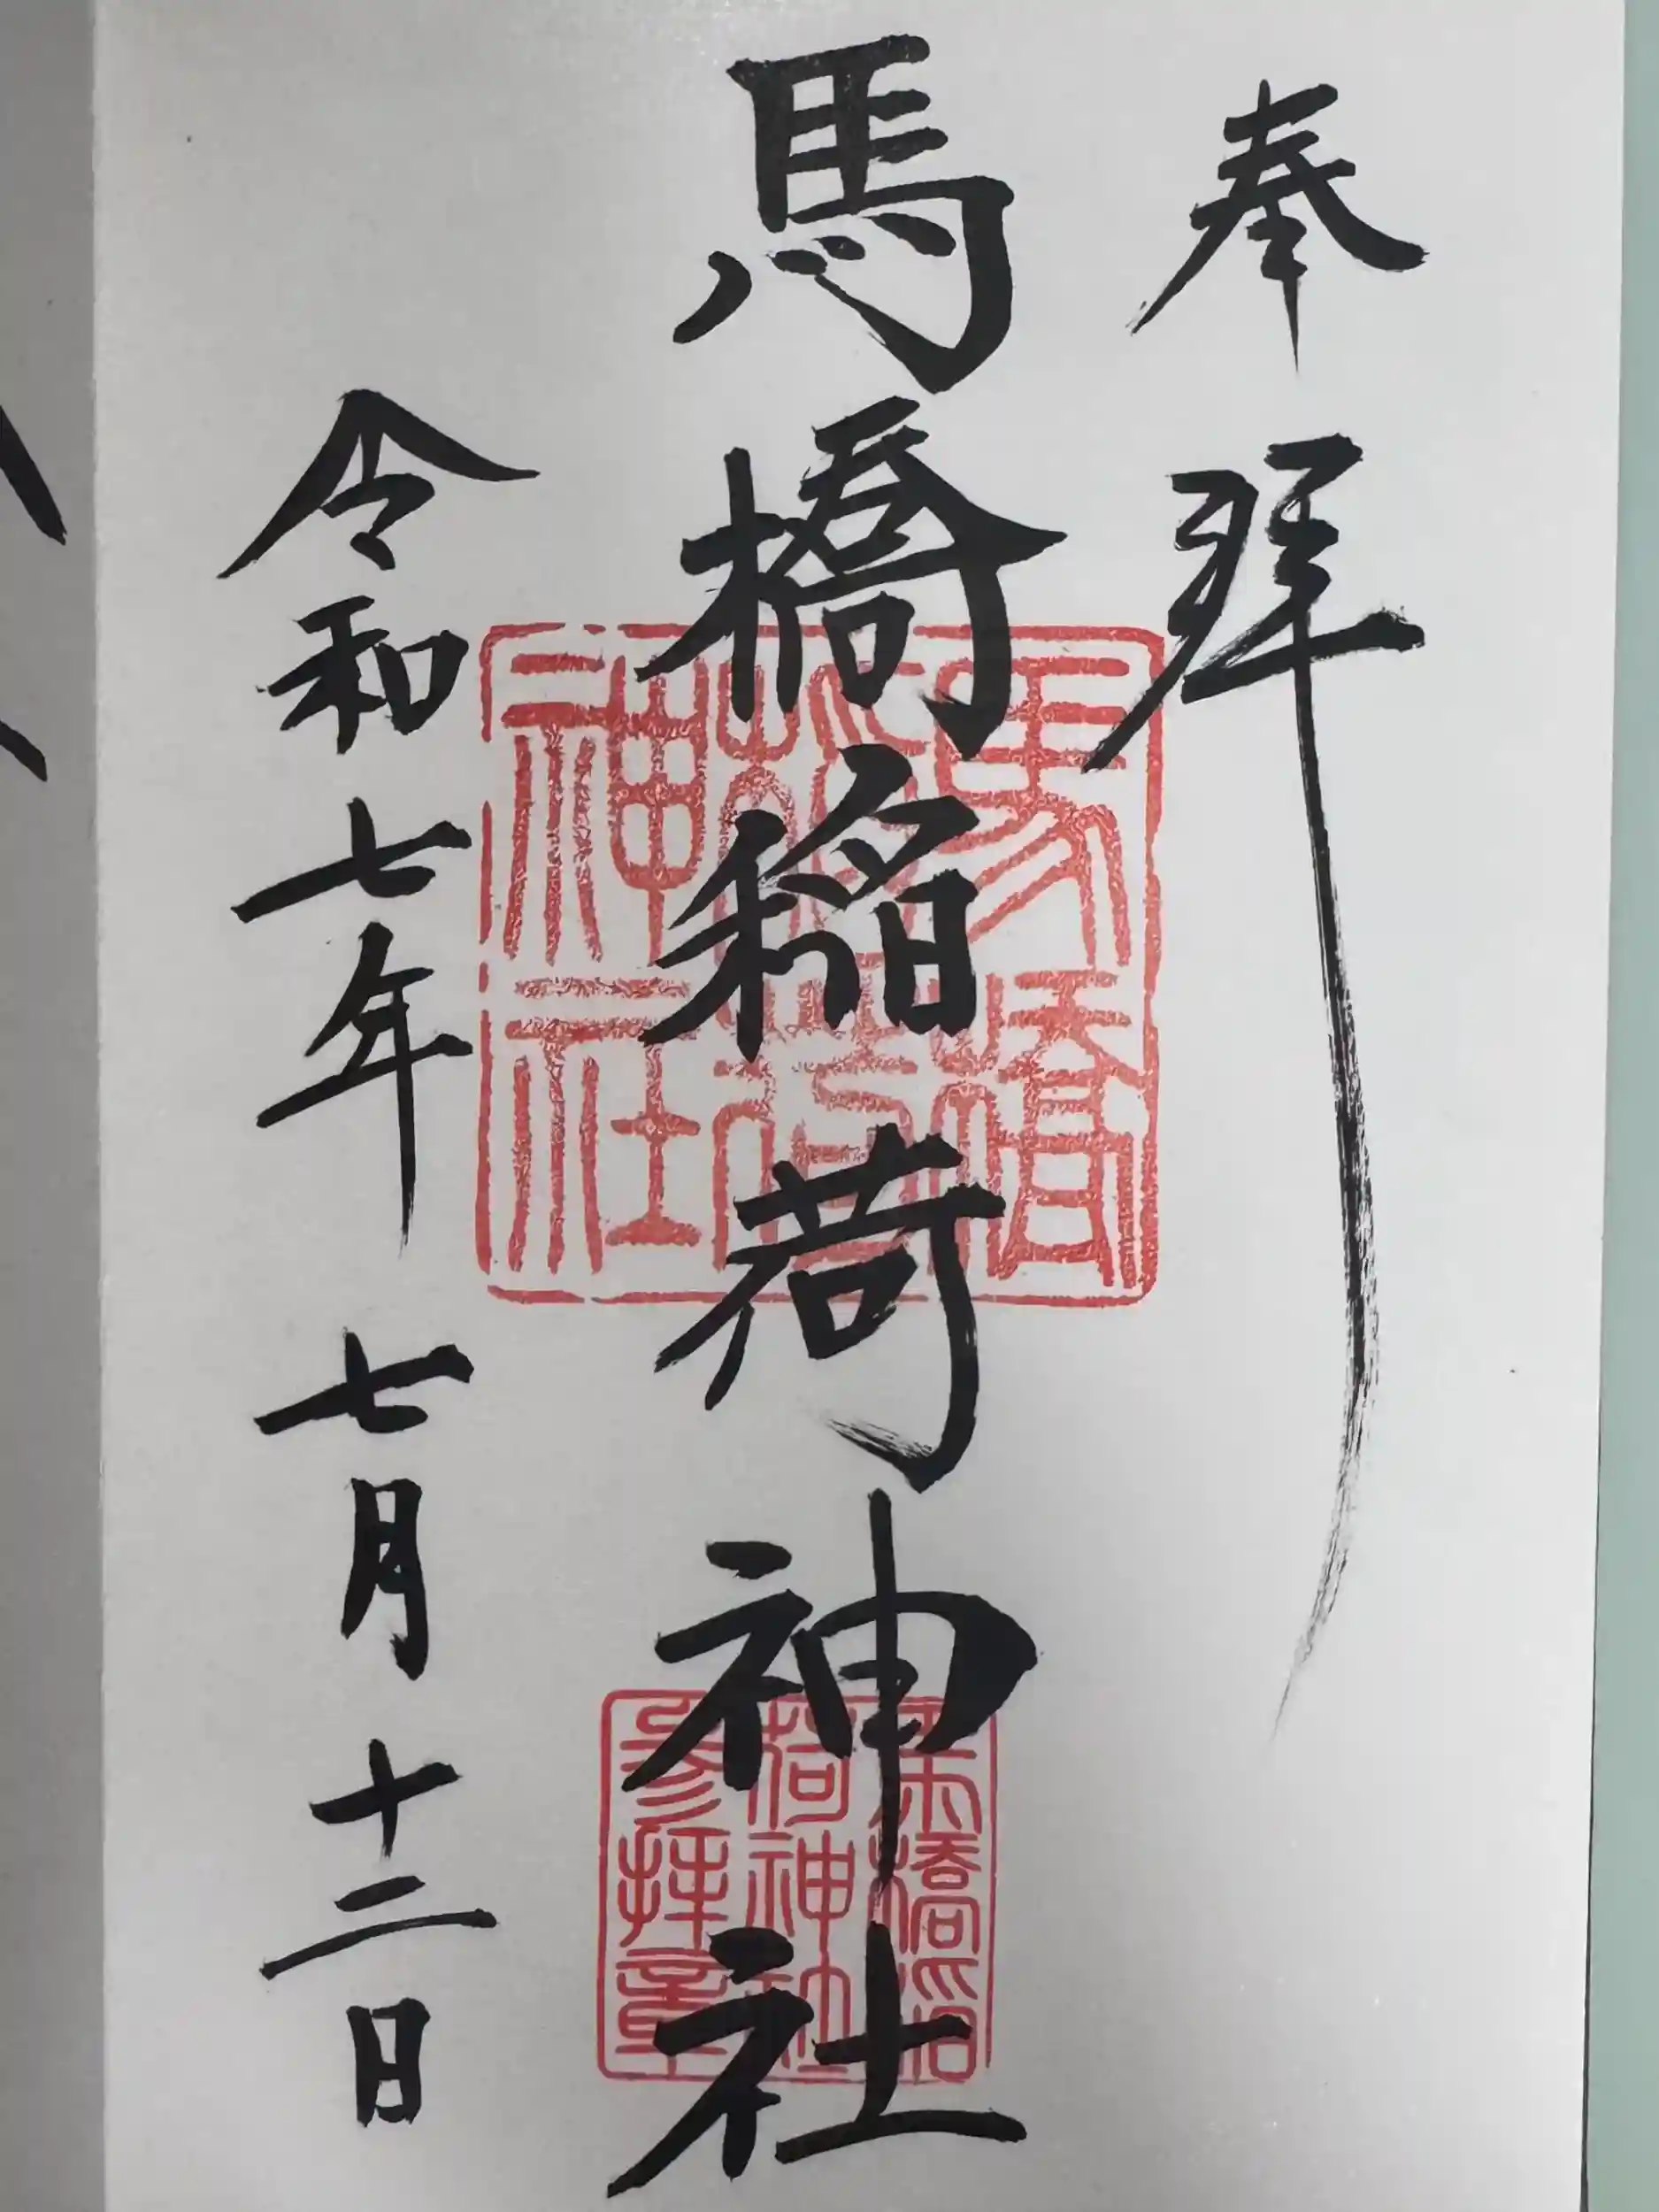 奉拝
馬橋稲荷神社
令和七年 七月十二日
馬橋
稲荷
神社
馬橋稲
荷神社
参拝章